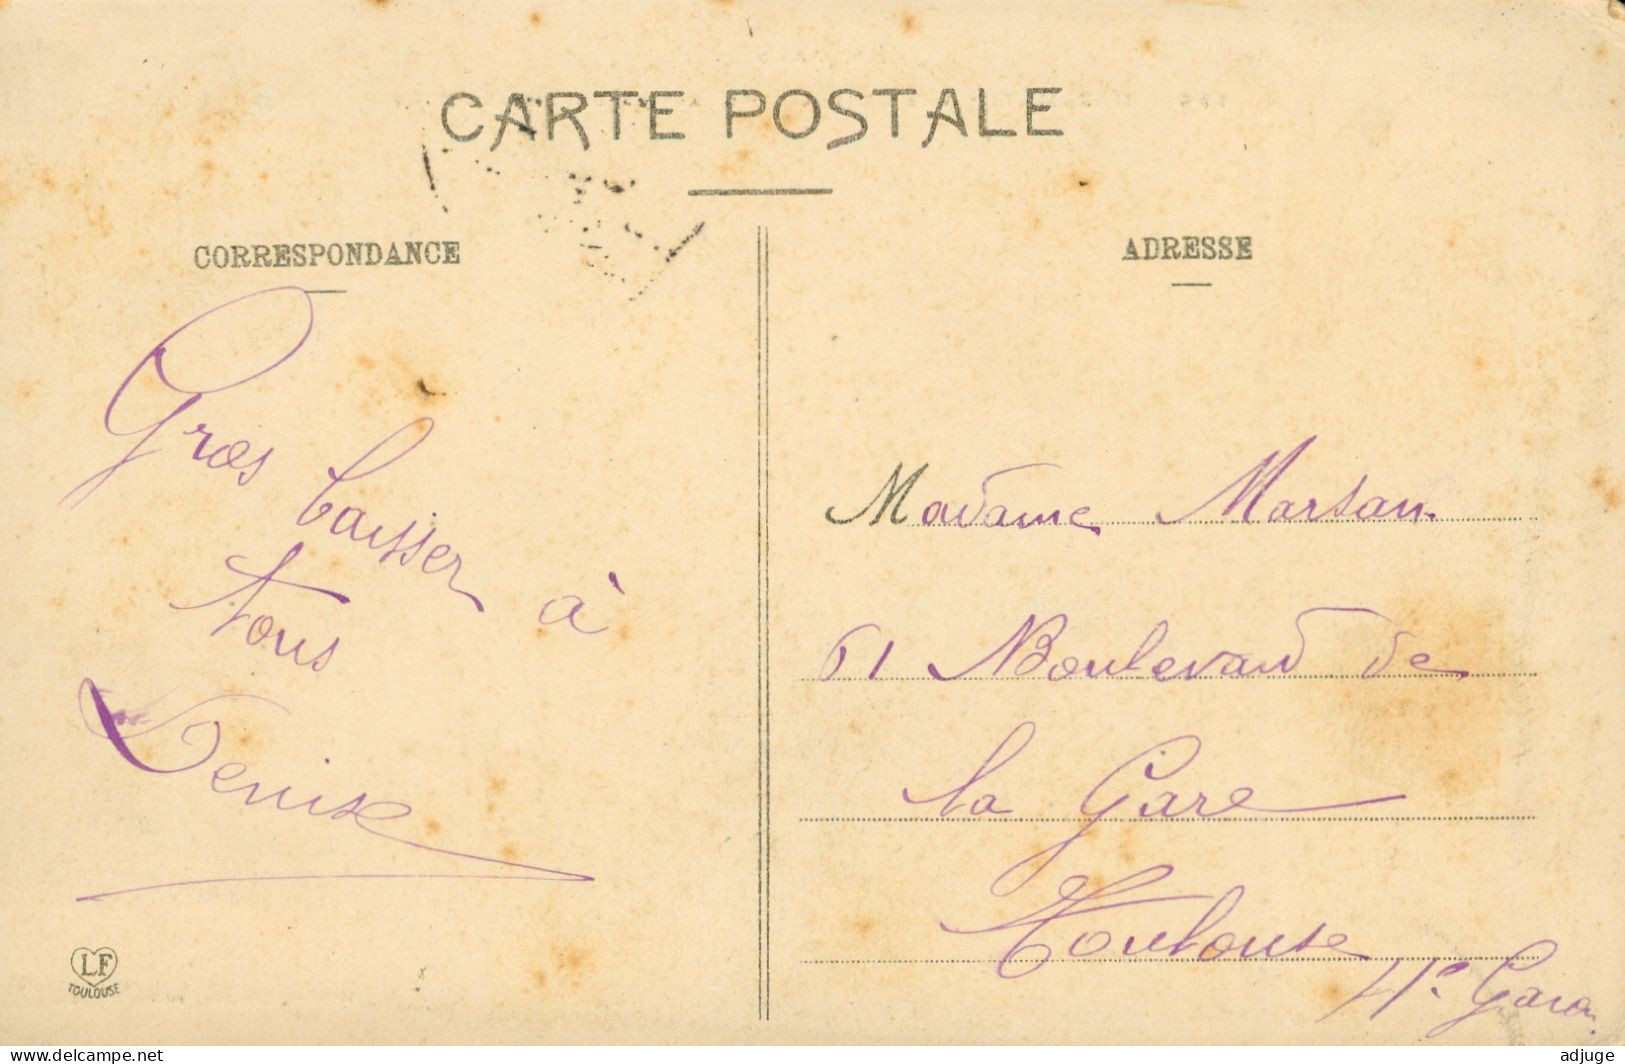 CARTE POSTALE
CORRESPONDANCE
Gros baisser à
tous
Denise
LF
TOULOUSE
ADRESSE
Madame Marsan
61 Boulevard de
la Gare
Toulouse
Hte Garon
delcampe.net
adjuge